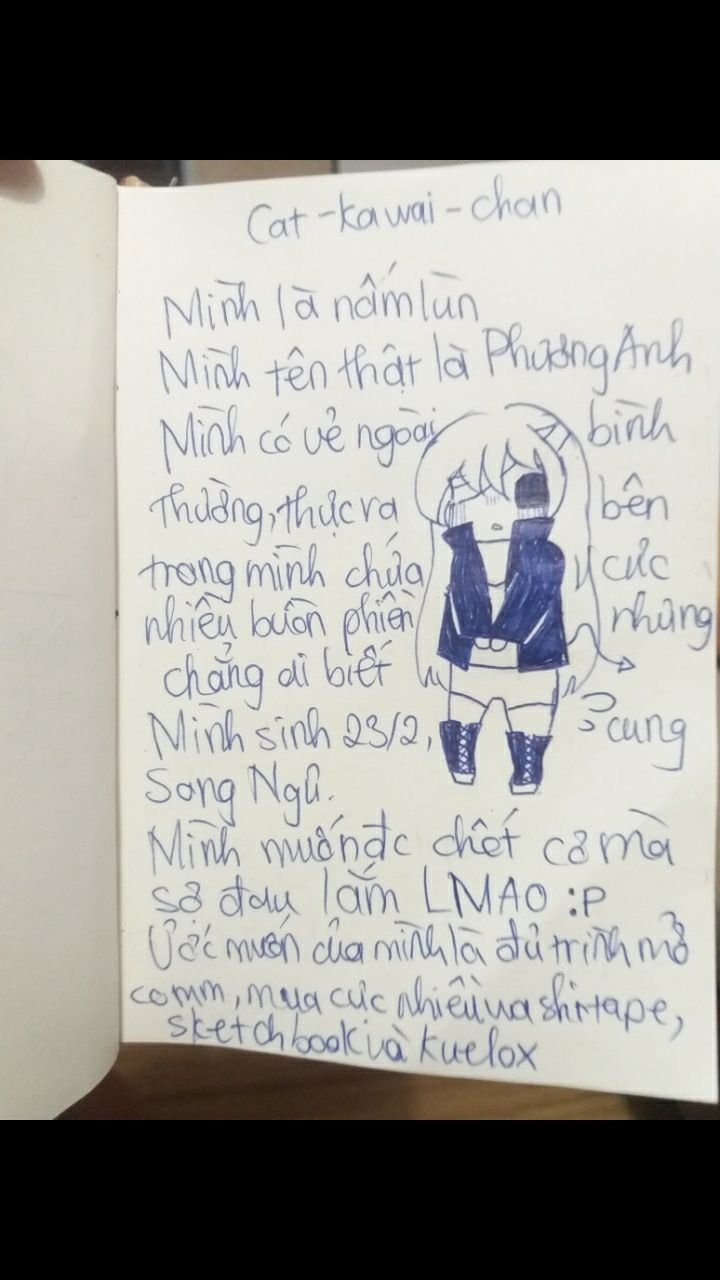 Cat-kawai-chan
Mình là nấm lùn
Mình tên thật là Phương Anh
Mình có vẻ ngoài bình
thường, thực ra bên
trong mình chứa cực
nhiều buồn phiền nhưng
chẳng ai biết
Mình sinh 23/2, cung
Song Ngư.
Mình muốn đc chết cơ mà
sợ đau lắm LMAO :P
Ước muốn của mình là đủ trình mở
comm, mua cực nhiều washi tape,
sketchbook và kuelox